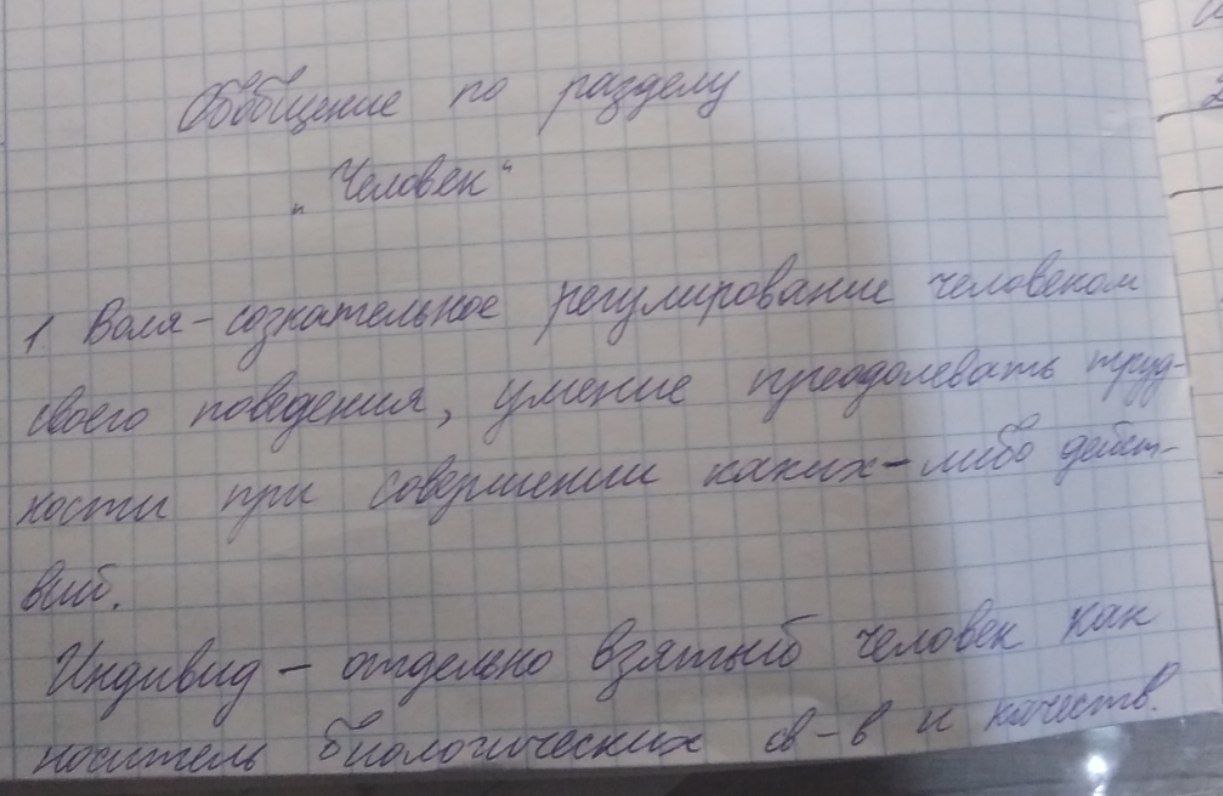 Обобщение по разделу
„Человек“
1. Воля - сознательное регулирование человеком
своего поведения, умение преодолевать труд-
ности при совершении каких-либо дейст-
вий.
Индивид - отдельно взятый человек как
носитель биологических св-в и качеств.